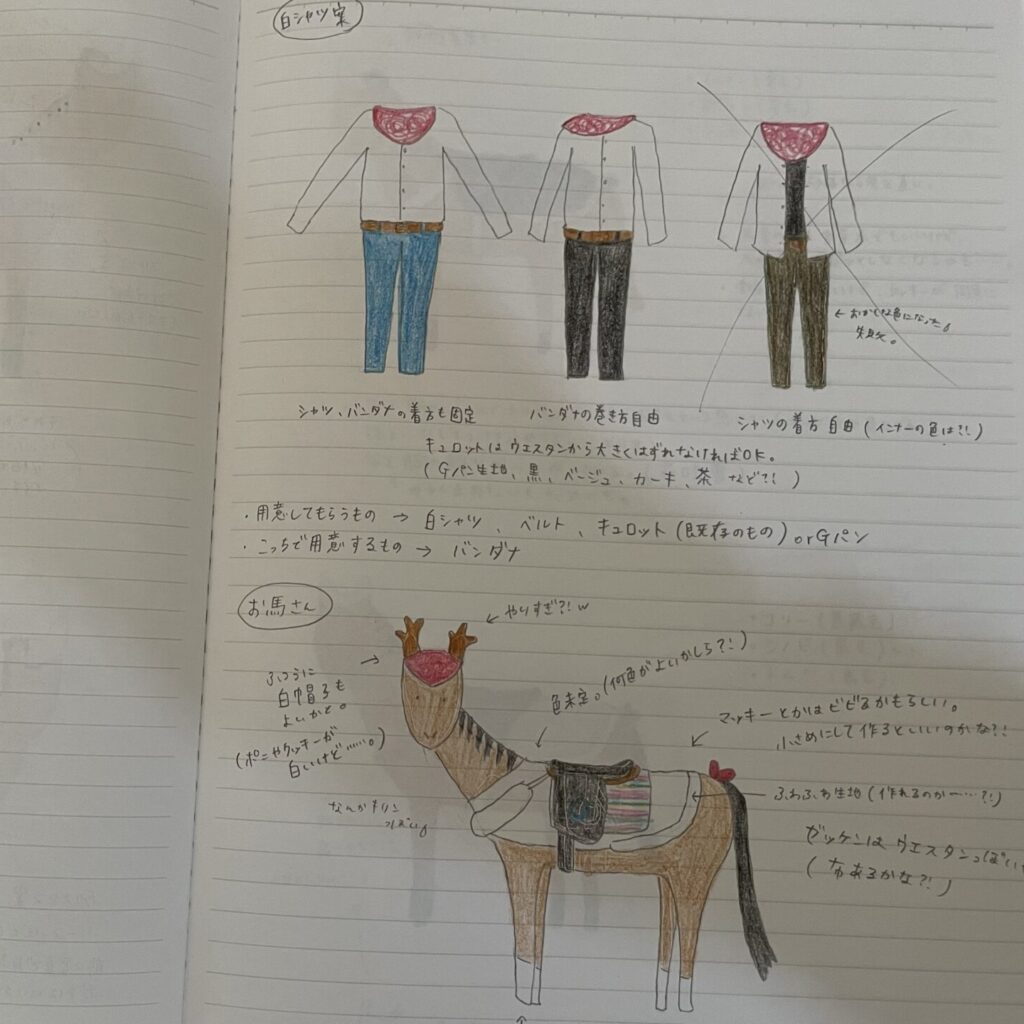 白シャツ案
←おかしな色になった。
失敗。
シャツ、バンダナの着方も固定
バンダナの巻き方自由
シャツの着方自由(インナーの色は?!)
キュロットはウエスタンから大きくはずれなければOK。
(Gパン生地、黒、ベージュ、カーキ、茶 など?!)
・用意してもらうもの → 白シャツ、ベルト、キュロット(既存のもの)orGパン
・こっちで用意するもの → バンダナ
お馬さん
←やりすぎ?!w
ふつうに
白帽子も
よいかと。
(ポニやクッキーが
白いけど……。)
色未定。(何色がよいかしら?!)
マッキーとかはビビるかもらしい。
小さめにして作るといいのかな?!
なんかキリン
っぽい。
ふわふわ生地(作れるのか……?!)
ゼッケンはウエスタンっぽい
(あるかな?!)